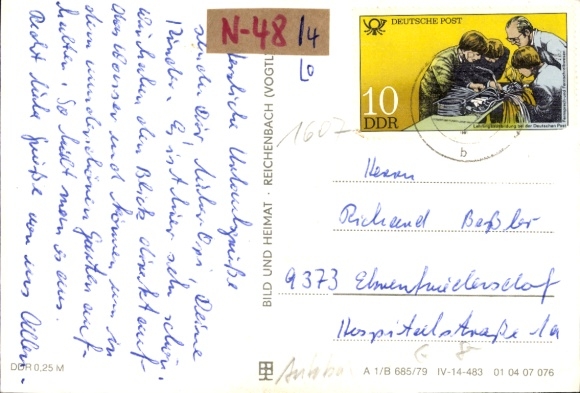 N-48/4
Herzliche Urlaubsgrüße
sendet Dir, lieber Opi, Deine
Kinder. Es ist hier sehr schön.
Wir haben den Blick direkt auf
das Wasser und können uns in
dem wunderschönen Garten auf-
halten. So läßt man es aus.
Recht liebe Grüße von uns Allen.
DDR 0,25 M
BILD UND HEIMAT · REICHENBACH (VOGTL
A 1/B 685/79 IV-14-483 01 04 07 076
DEUTSCHE POST
10
DDR
Lehrlingsausbildung bei der Deutschen Post
1602
b
Herrn
Richard Beßler
9373 Ehrenfriedersdorf
Hospitalstraße 1a